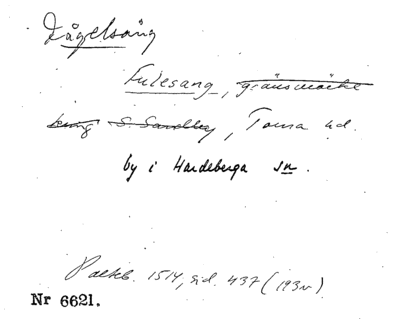 Fågelsång
Fulesang, gränsmärke
kring S. Sandby, Torna hd.
by i Hardeberga sn.
Palteb. 1514, sid. 437 (193v)
Nr 6621.